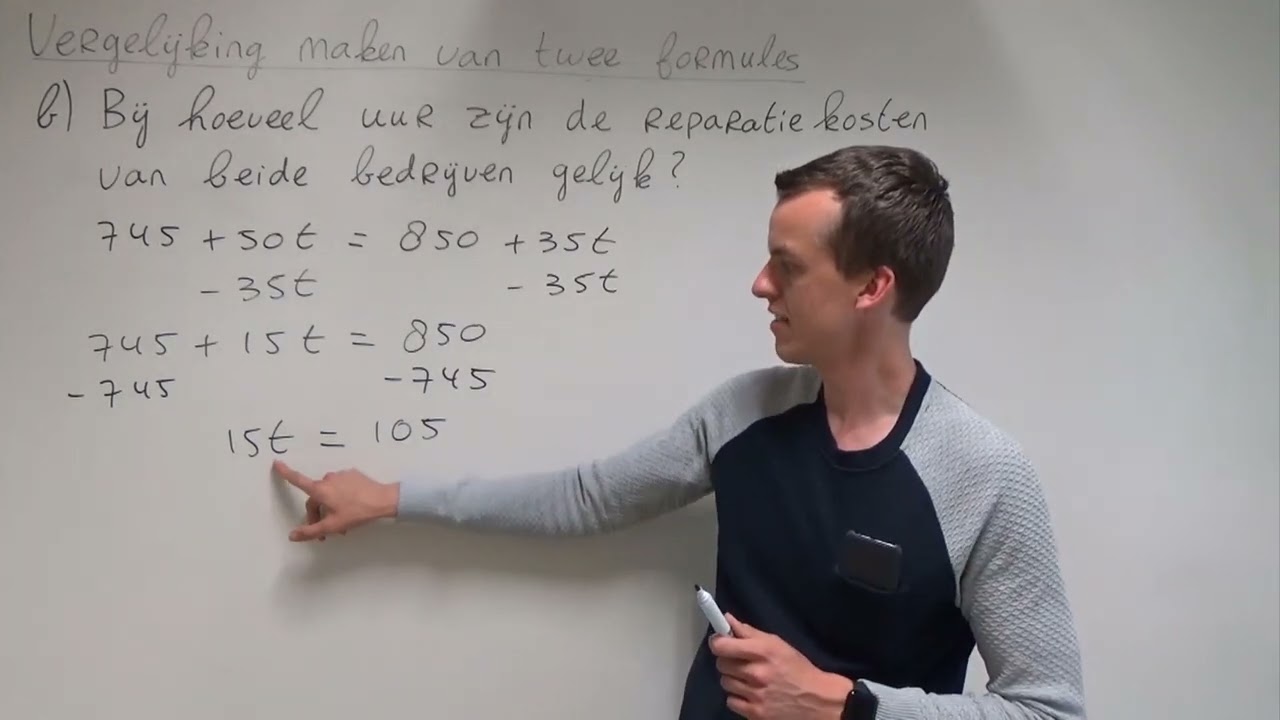 Vergelijking maken van twee formules
b) Bij hoeveel uur zijn de reparatiekosten
van beide bedrijven gelijk?
745 + 50t = 850 + 35t
- 35t - 35t
745 + 15t = 850
- 745 - 745
15t = 105